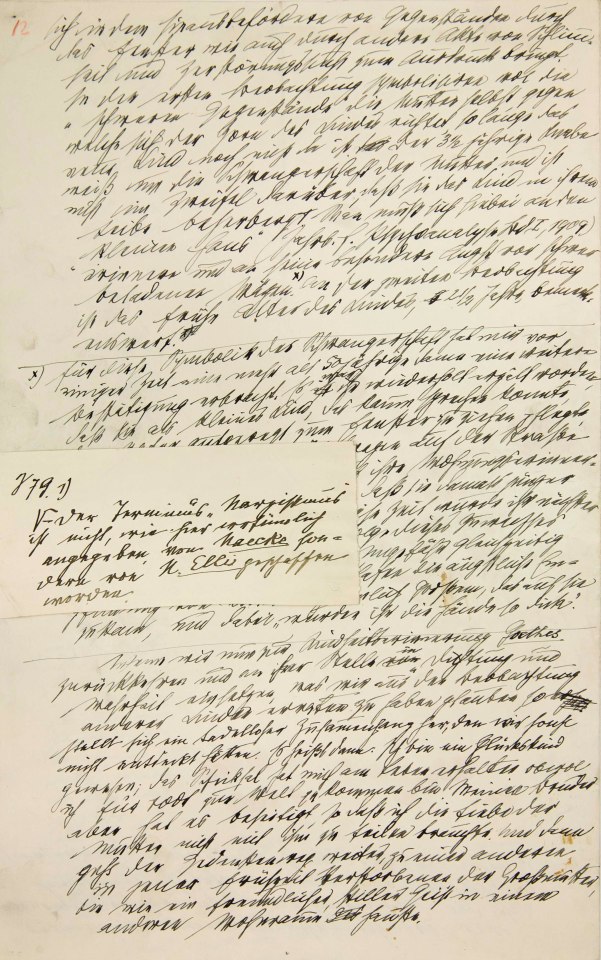 12
sich in dem Hinausbefördern von Gegenständen durch
das Fenster wie auch durch andere Akte von Schlimm-
heit und Zerstörungssucht zum Ausdruck bringt.
In der ersten Beobachtung symbolisiren wol die
„schweren Gegenstände“ die Mutter selbst gegen
welche sich der Zorn des Kindes richtet so lange das
neue Kind noch nicht da ist. Der 3½ jährige Knabe
weiß um die Schwangerschaft der Mutter und ist
nicht im Zweifel darüber, daß sie das Kind in ihrem
Leibe beherbergt. Man muß sich hiebei an den
„kleinen Hans“ (Jahrb. f. Psychoanalyse Bd I, 1909)
erinnern und an seine besondere Angst vor schwer
beladenen Wagen. x) An der zweiten Beobachtung
ist das frühe Alter des Kindes, 2½ Jahre bemerk-
enswert.
x) Für diese Symbolik der Schwangerschaft hat mir vor
einiger Zeit eine mehr als 50 jährige Dame eine weitere
Bestätigung erbracht. Es war ihr wiederholt erzählt worden
daß sie als kleines Kind, das kaum sprechen konnte,
aufgeregt zum Fenster zu ziehen pflegte
wagen auf der Straße
ihrer Wohnungserinner-
daß sie damals jünger
Zeit wurde ihr nächster
dieses Zuwachses
Ungefähr gleichzeitig
die ängstliche Em-
pfindung von Großem, das auf sie
zukam, und dabei „wurden ihr die Hände so dick“.
γ 79. 1)
Der Terminus „Narzissmus“
ist nicht, wie hier irrtümlich
angegeben, von Naecke son-
dern von H. Ellis geschaffen
worden.
Wenn wir nun zur Kindheitserinnerung Goethes
zurückkehren und an ihrer Stelle in Dichtung und
Wahrheit einsetzen was wir aus der Beobachtung
anderer Kinder erraten zu haben glauben so
stellt sich ein tadelloser Zusammenhang her, den wir sonst
nicht entdeckt hätten. Es heißt dann: Ich bin ein Glückskind
gewesen; das Schicksal hat mich am Leben erhalten obwol
ich für todt zur Welt gekommen bin. Meinen Bruder
aber hat es beseitigt so daß ich die Liebe der
Mutter nicht mit ihm zu teilen brauchte. Und dann
geht der Gedankenweg weiter, zu einer anderen
in jener Frühzeit Verstorbenen der Großmutter,
die wie ein freundlicher, stiller Geist in einem
anderen Wohnraum hauste.